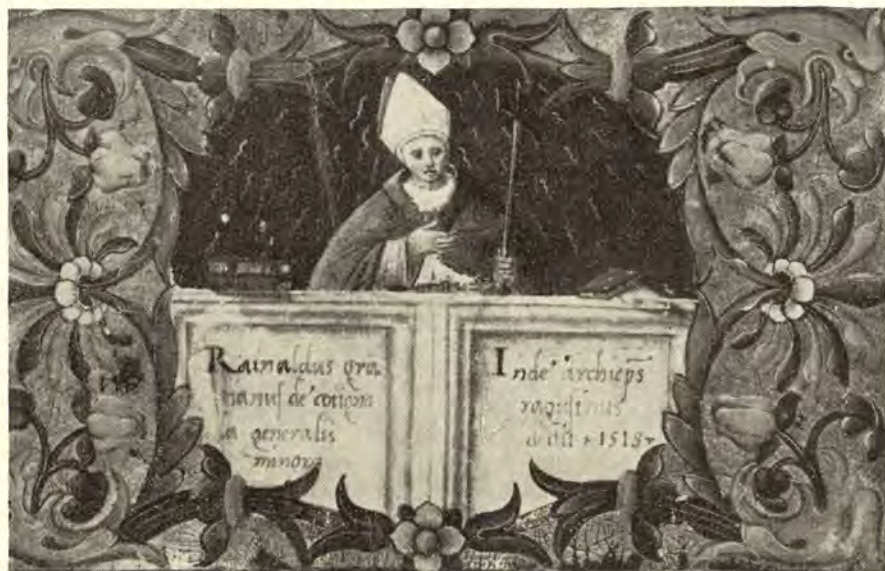 Rainaldus gra
nanus de cotigno
la generalis
minorꝫ
Inde archiep̃s
ragusinus
dedit 1518